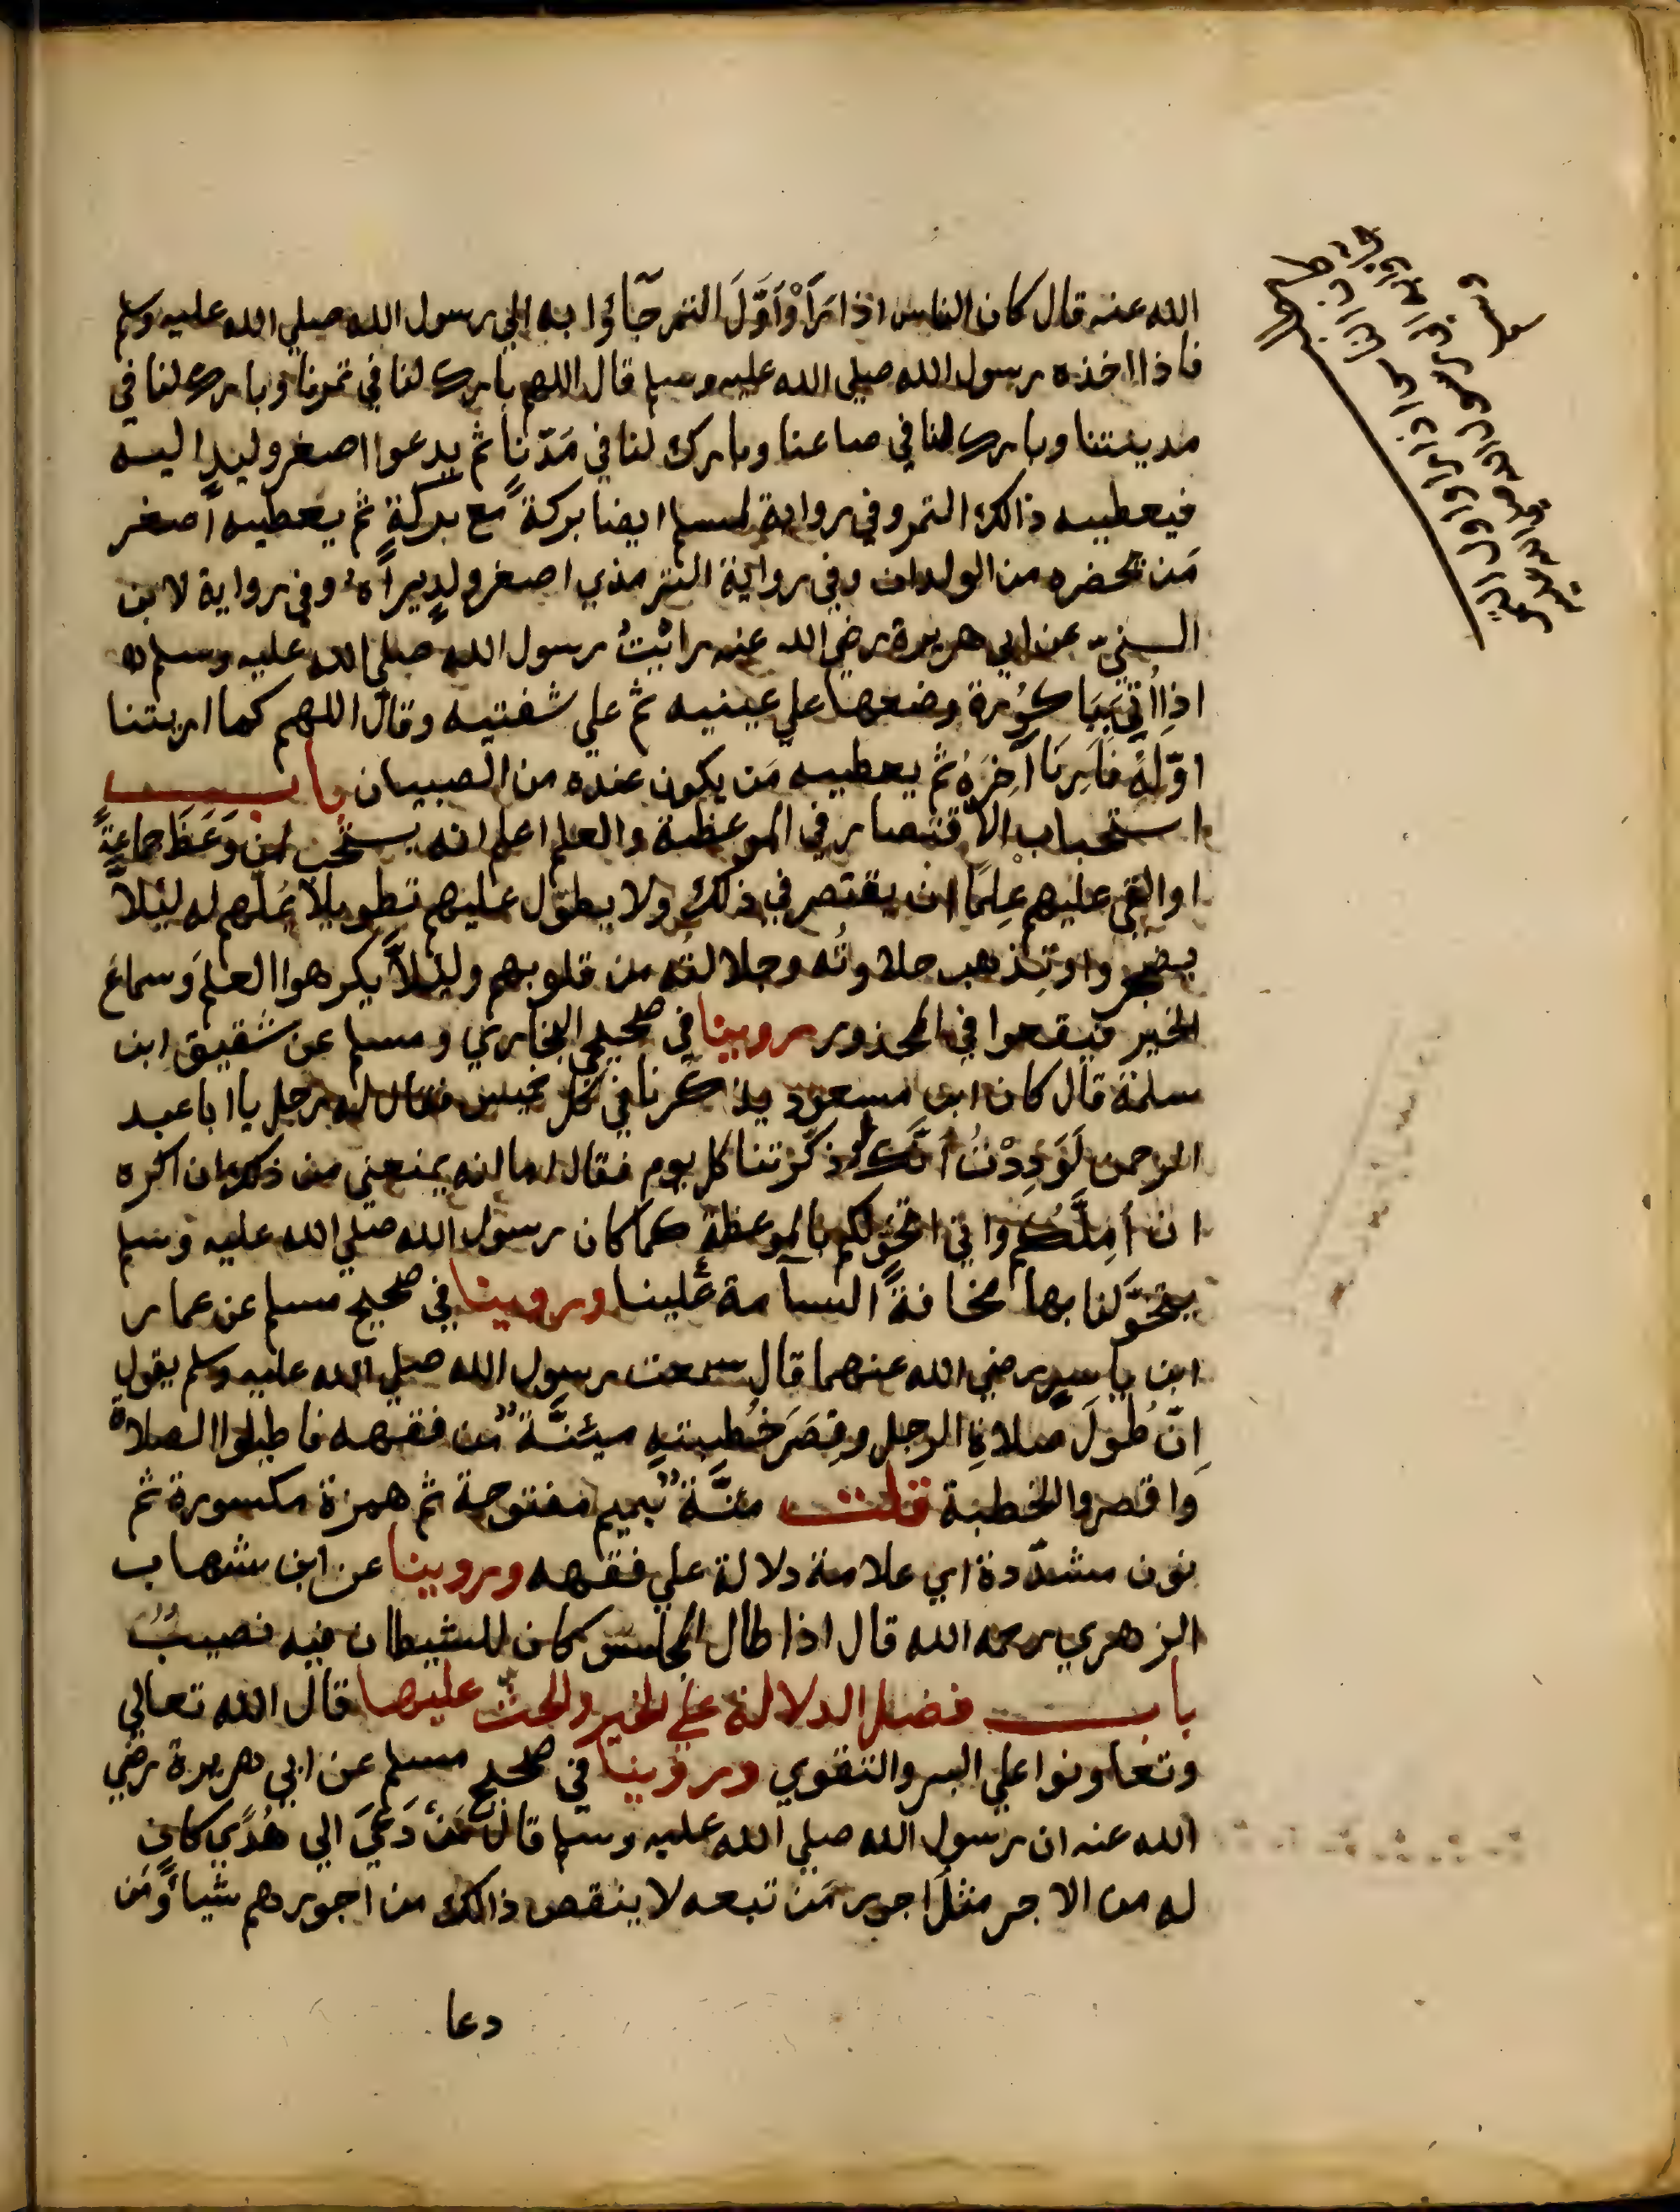 الله عنه قال كان الناس اذا رَأَوْا أَوَّلَ التمر جَآؤا به الي رسول الله صلي الله عليه وسلم
فاذا اخذه رسول الله صلي الله عليه وسلم قال اللهم بارك لنا في تمرنا وبارك لنا في
مدينتنا وبارك لنا في صاعنا وبارك لنا في مَدّنا ثم يدعوا اصغر وليدٍ اليه
فيعطيه ذالك التمر وفي رواية لمسلم ايضا بركةً مع بركةٍ ثم يعطيه اصغر
مَن تحضره من الولدان وفي رواية الترمذي اصغر ولدٍ يراهُ وفي رواية لابن
السنيّ عن ابي هريرة رضي الله عنه رائيتُ رسول الله صلي الله عليه وسلم
اذا اُتي بباكورة وضعها علي عينيه ثم علي شفتيه وقال اللهم كما اريتنا
اوّلهُ فاَرِنا آخِرَهُ ثم يعطيه مَن يكون عنده من الصبيان باب
استحباب الاقتصار في الموعظة والعلم اعلم انه يستحب لمن وَعَظَ جماعةً
او القي عليهم عِلمًا ان يقتصر في ذلك ولا يطوّل عليهم تطويلاً يُملّهم له ليَلاَّ
يضجروا وتذهب حلاوتُه وجلالتُه من قلوبهم وليَلاَّ يكرهوا العلمَ وسماعَ
الخير فيقعوا في المحذور روينا في صحيحي البخاري ومسلم عن شقيق ابن
سلمة قال كان ابن مسعود يذكّرنا في كل خميس فقال له رجل يا ابا عبد
الرحمن لَوَدِدْتُ أنَّك لو ذكّرتنا كل يوم فقال اما انه يمنعني من ذلك ان اكره
ان أمِلَّكُم واني اتخوّلكم بالموعظة كما كان رسول الله صلي الله عليه وسلم
يتخوَّلنا بها مخافةً السآمة علينا وروينا في صحيح مسلم عن عمار
ابن ياسر رضي الله عنهما قال سمعت رسول الله صلي الله عليه وسلم يقول
اِنّ طُولَ صلاةِ الرجل وقِصَرَ خُطبتهِ ميئنَّةٌ من فقهه فاطيلوا الصلاة
واقصروا الخطبة قلت مئنَّةٌ بميم مفتوحة ثم همزة مكسورة ثم
نون مشدّدة اي علامة دلالة علي فقهه وروينا عن ابن شهاب
الزهري رحمه الله قال اذا طال المجلس كان للشيطان فيه نصيبٌ
باب فضل الدلالة علي الخير والحثّ عليها قال الله تعالي
وتعاونوا علي البر والتقوي وروينا في صحيح مسلم عن ابي هريرة رضي
الله عنه ان رسول الله صلي الله عليه وسلم قال مَن دَعيَ الي هُدًي كان
له من الاجر مثلَ اجور مَن تبعه لا ينقص ذالك من اجورهم شيأً ومَن
دعا